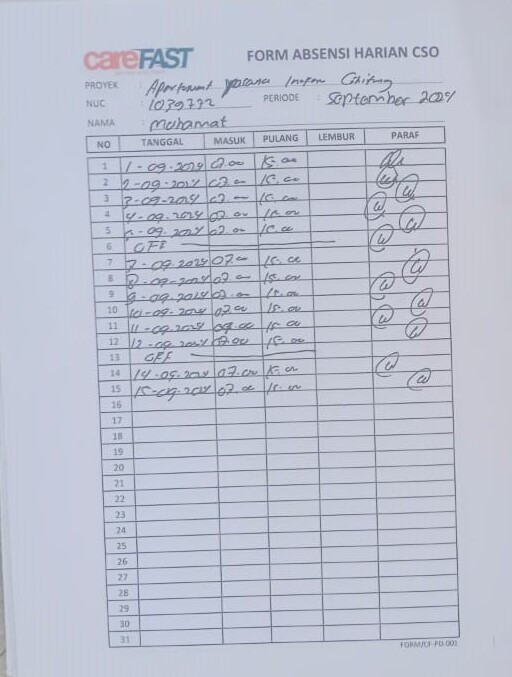 careFAST
FORM ABSENSI HARIAN CSO
PROYEK :
NUC : 1079772 PERIODE : September 2024
NAMA : Muhamat
NO TANGGAL MASUK PULANG LEMBUR PARAF
1 1-09-2024 07.00 15.00
2 2-09-2024 07.00 15.00
3 3-09-2024 07.00 15.00
4 4-09-2024 07.00 15.00
5 5-09-2024 07.00 15.00
6 OFF
7 7-09-2024 07.00 15.00
8 8-09-2024 07.00 15.00
9 9-09-2024 07.00 15.00
10 10-09-2024 07.00 15.00
11 11-09-2024 15.00
12 12-09-2024 07.00 15.00
13 OFF
14 14-09-2024 07.00 15.00
15 15-09-2024 07.00 15.00
16
17
18
19
20
21
22
23
24
25
26
27
28
29
30
31
FORM/CF-PD.001